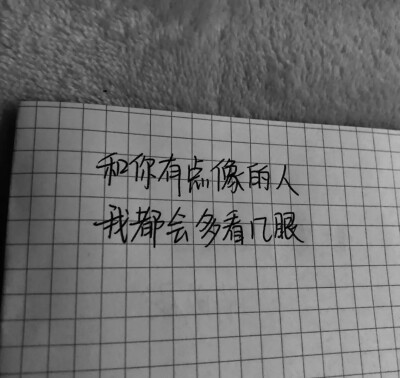 和你有点像的人
我都会多看几眼